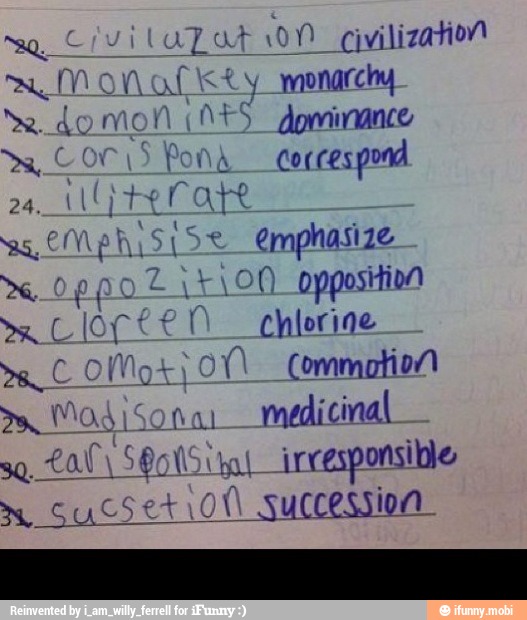 20. civiluzation civilization
21. monarkey monarchy
22. domonints dominance
23. corispond correspond
24. illiterate
25. emphisise emphasize
26. oppozition opposition
27. cloreen chlorine
28. comotion commotion
29. madisonal medicinal
30. earisponsibal irresponsible
31. sucsetion succession
Reinvented by i_am_willy_ferrell for iFunny :)
ifunny.mobi